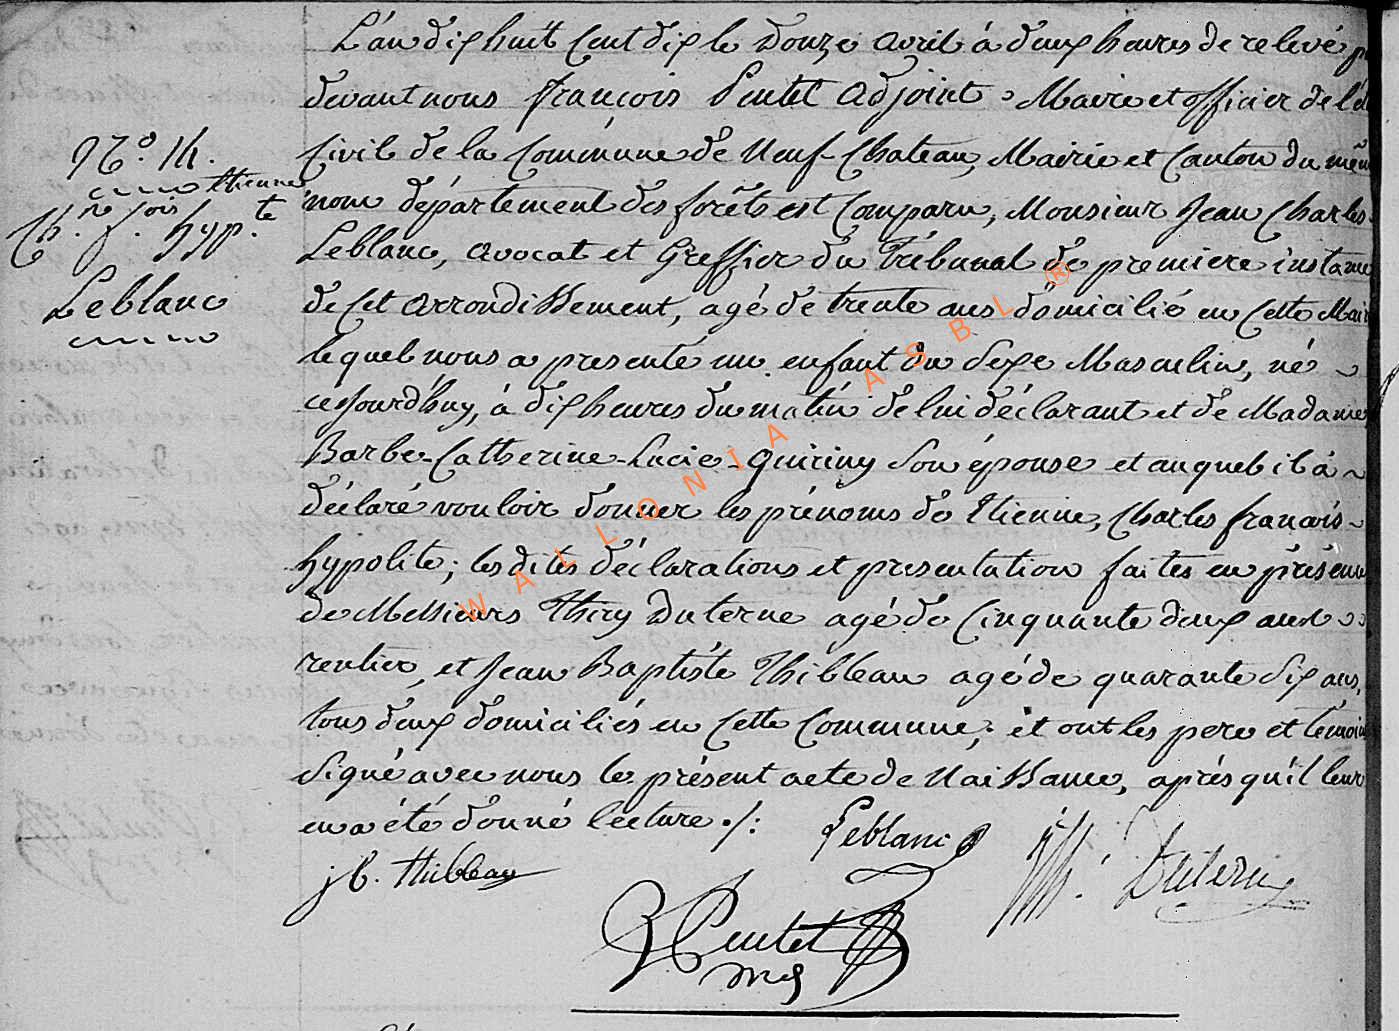 L'an dix huit Cent dix le Douze avril à deux heures de relevé
devant nous françois Pentet adjoint Maire et officier de l'
Civil de la Commune de Neuf-Chateau, Mairie et Canton du mêm
nom département des forêts est Comparu, Monsieur Jean Charles
Leblanc, avocat et Greffier du Tribunal de premiere instance
de Cet arrondissement, agé de trente ans domicilié en Cette Mair
lequel nous a presenté un enfant du Sexe Masculin, né
cejourd'huy, à dix heures du matin de lui déclarant et de Madame
Barbe-Catherine-Lucie-Quiriny Son épouse et auquel il à
déclaré vouloir donner les prénoms de Etienne, Charles françois
hypolite; les dites déclarations et presentation faites en présence
de Messieurs Thiry Duterne agé de Cinquante deux ans
rentier, et Jean Baptiste Thibleau agé de quarante Six ans,
tous deux domiciliés en Cette Commune; et ont les pere et témoin
Signé avec nous le présent acte de Naissance, après qu'il leur
en a été donné lecture ./:
N.° 14.
Etienne
Ch. fçois hyp.te
Leblanc
Leblanc
j b. Thibleau
Th. Duterne
Pentet
WALLONIA ASBL ®